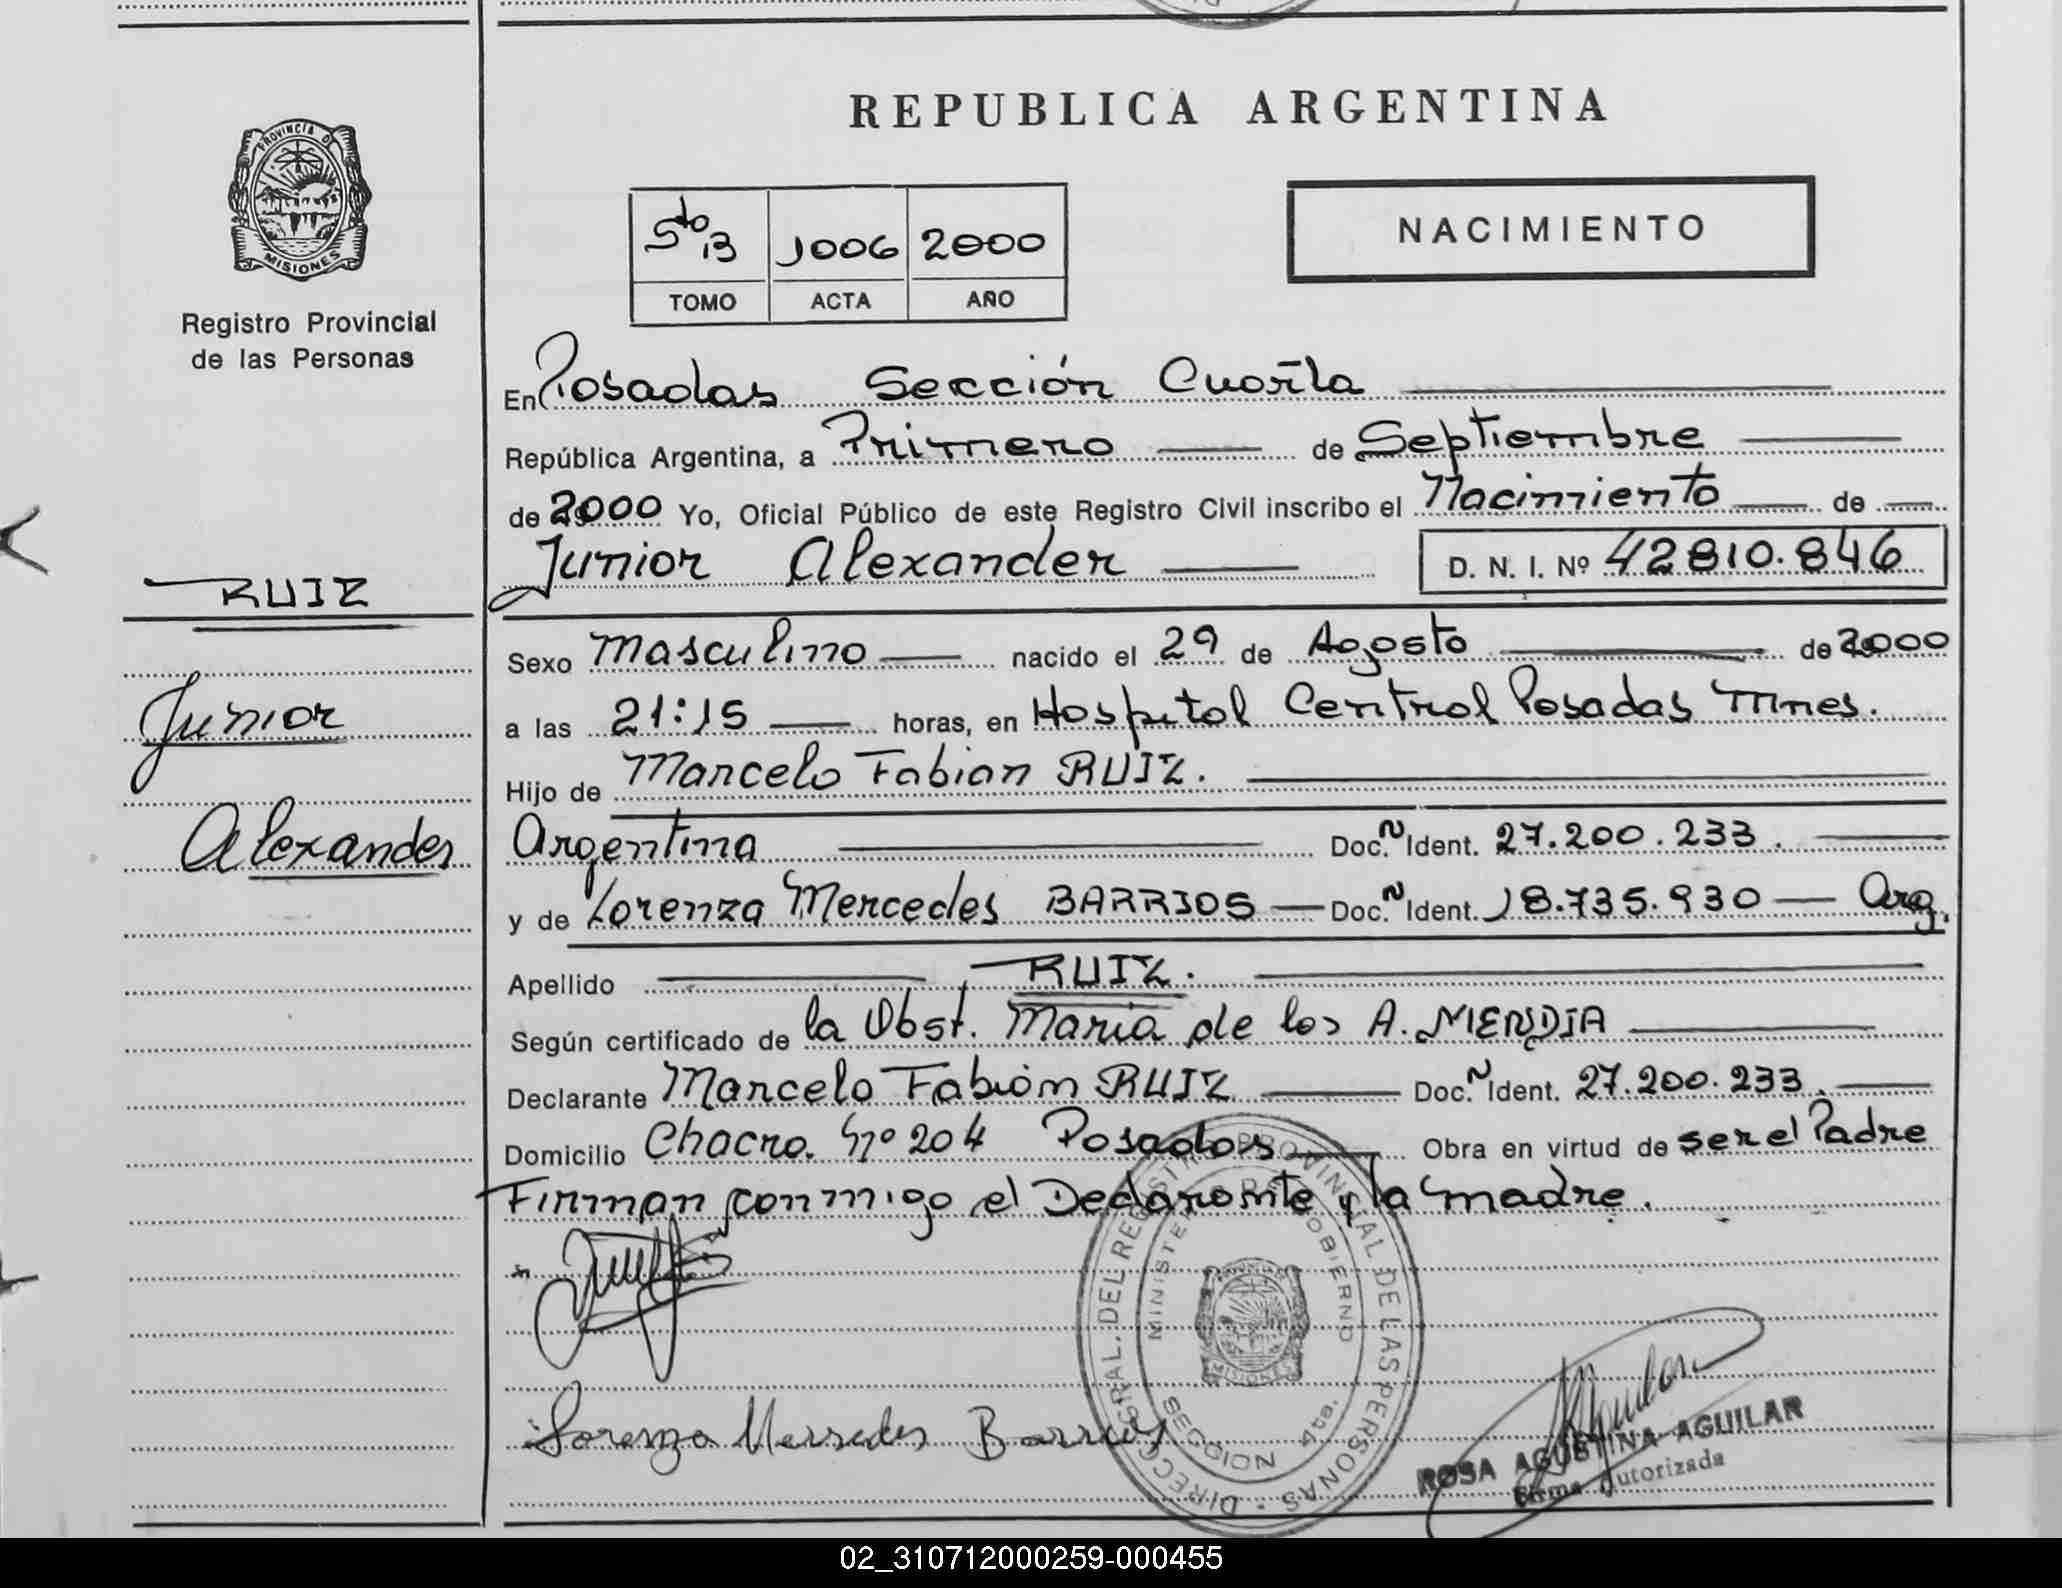 REPUBLICA ARGENTINA
PROVINCIA DE
MISIONES
Registro Provincial
de las Personas
5to B 1006 2000
TOMO ACTA AÑO
NACIMIENTO
En Posadas Sección Cuarta
República Argentina, a Primero de Septiembre
de 2000 Yo, Oficial Público de este Registro Civil inscribo el Nacimiento de
Junior Alexander D. N. I. Nº 42810.846
RUIZ
Junior
Alexander
Sexo Masculino nacido el 29 de Agosto de 2000
a las 21:15 horas, en Hospital Central Posadas Mnes.
Hijo de Marcelo Fabian RUIZ.
Argentina Doc. N Ident. 27.200.233.
y de Lorenza Mercedes BARRIOS Doc. N Ident. 18.735.930 Arg.
Apellido RUIZ.
Según certificado de la Obst. Maria de los A. MENDIA
Declarante Marcelo Fabián RUIZ Doc. N Ident. 27.200.233.
Domicilio Chacra Nº 204 Posadas Obra en virtud de ser el Padre
Firman conmigo el Declarante y la madre.
DIRECC. GRAL. DEL REGISTRO PROVINCIAL DE LAS PERSONAS
MINISTERIO DE GOBIERNO
MISIONES
SECCION 4ta.
Lorenza Mersedes Barrios
ROSA AGUSTINA AGUILAR
Firma Autorizada
02_310712000259-000455